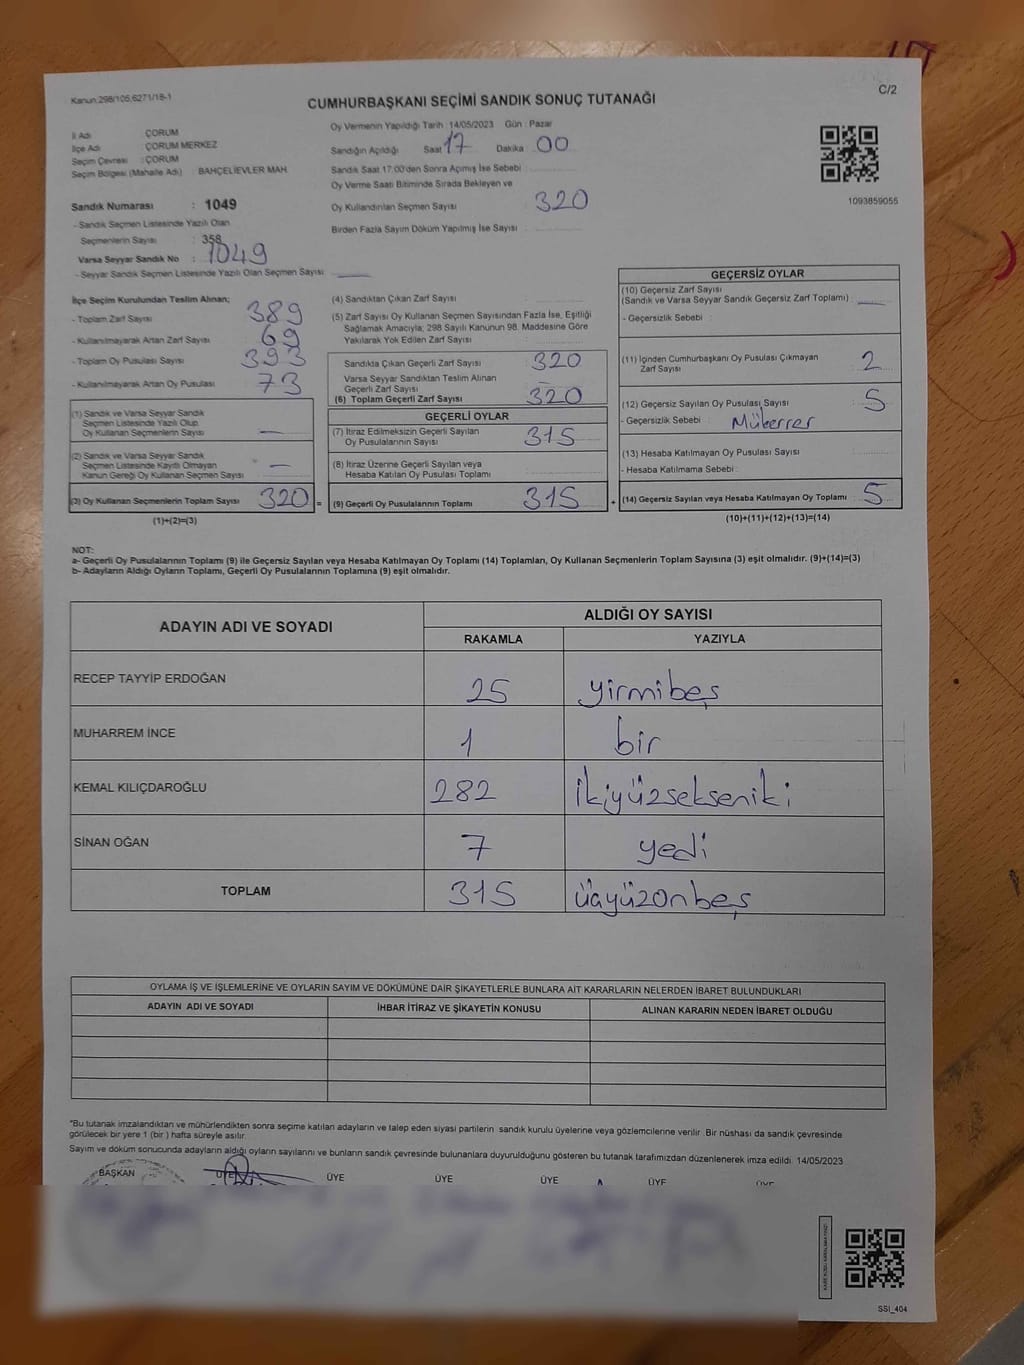 Kanun:298/105,6271/18-1
C/2
CUMHURBAŞKANI SEÇİMİ SANDIK SONUÇ TUTANAĞI
İl Adı : ÇORUM
İlçe Adı : ÇORUM MERKEZ
Seçim Çevresi : ÇORUM
Seçim Bölgesi (Mahalle Adı) : BAHÇELİEVLER MAH
Sandık Numarası : 1049
- Sandık Seçmen Listesinde Yazılı Olan
Seçmenlerin Sayısı : 358
Varsa Seyyar Sandık No : 1049
- Seyyar Sandık Seçmen Listesinde Yazılı Olan Seçmen Sayısı
Oy Vermenin Yapıldığı Tarih : 14/05/2023 Gün : Pazar
Sandığın Açıldığı Saat 17 Dakika : 00
Sandık Saat 17:00'den Sonra Açımış İse Sebebi :
Oy Verme Saati Bitiminde Sırada Bekleyen ve
Oy Kullandırılan Seçmen Sayısı : 320
Birden Fazla Sayım Döküm Yapılmış İse Sayısı :
1093859055
İlçe Seçim Kurulundan Teslim Alınan;
- Toplam Zarf Sayısı : 389
- Kullanılmayarak Artan Zarf Sayısı : 69
- Toplam Oy Pusulası Sayısı : 393
- Kullanılmayarak Artan Oy Pusulası : 73
(1) Sandık ve Varsa Seyyar Sandık
Seçmen Listesinde Yazılı Olup,
Oy Kullanan Seçmenlerin Sayısı : —
(2) Sandık ve Varsa Seyyar Sandık
Seçmen Listesinde Kayıtlı Olmayan
Kanun Gereği Oy Kullanan Seçmen Sayısı : —
(3) Oy Kullanan Seçmenlerin Toplam Sayısı 320 =
(1)+(2)=(3)
(4) Sandıktan Çıkan Zarf Sayısı :
(5) Zarf Sayısı Oy Kullanan Seçmen Sayısından Fazla İse, Eşitliği
Sağlamak Amacıyla; 298 Sayılı Kanunun 98. Maddesine Göre
Yakılarak Yok Edilen Zarf Sayısı :
Sandıkta Çıkan Geçerli Zarf Sayısı : 320
Varsa Seyyar Sandıktan Teslim Alınan
Geçerli Zarf Sayısı : —
(6) Toplam Geçerli Zarf Sayısı : 320
GEÇERLİ OYLAR
(7) İtiraz Edilmeksizin Geçerli Sayılan
Oy Pusulalarının Sayısı : 315
(8) İtiraz Üzerine Geçerli Sayılan veya
Hesaba Katılan Oy Pusulası Toplamı :
(9) Geçerli Oy Pusulalarının Toplamı : 315 +
GEÇERSİZ OYLAR
(10) Geçersiz Zarf Sayısı
(Sandık ve Varsa Seyyar Sandık Geçersiz Zarf Toplamı) : —
- Geçersizlik Sebebi :
(11) İçinden Cumhurbaşkanı Oy Pusulası Çıkmayan
Zarf Sayısı : 2
(12) Geçersiz Sayılan Oy Pusulası Sayısı : 5
- Geçersizlik Sebebi : Mükerrer
(13) Hesaba Katılmayan Oy Pusulası Sayısı :
- Hesaba Katılmama Sebebi :
(14) Geçersiz Sayılan veya Hesaba Katılmayan Oy Toplamı : 5
(10)+(11)+(12)+(13)=(14)
NOT:
a- Geçerli Oy Pusulalarının Toplamı (9) ile Geçersiz Sayılan veya Hesaba Katılmayan Oy Toplamı (14) Toplamları, Oy Kullanan Seçmenlerin Toplam Sayısına (3) eşit olmalıdır. (9)+(14)=(3)
b- Adayların Aldığı Oyların Toplamı, Geçerli Oy Pusulalarının Toplamına (9) eşit olmalıdır.
ADAYIN ADI VE SOYADI
ALDIĞI OY SAYISI
RAKAMLA YAZIYLA
RECEP TAYYİP ERDOĞAN 25 yirmibeş
MUHARREM İNCE 1 bir
KEMAL KILIÇDAROĞLU 282 ikiyüzsekseniki
SİNAN OĞAN 7 yedi
TOPLAM 315 üçyüzonbeş
OYLAMA İŞ VE İŞLEMLERİNE VE OYLARIN SAYIM VE DÖKÜMÜNE DAİR ŞİKAYETLERLE BUNLARA AİT KARARLARIN NELERDEN İBARET BULUNDUKLARI
ADAYIN ADI VE SOYADI İHBAR İTİRAZ VE ŞİKAYETİN KONUSU ALINAN KARARIN NEDEN İBARET OLDUĞU
*Bu tutanak imzalandıktan ve mühürlendikten sonra seçime katılan adayların ve talep eden siyasi partilerin sandık kurulu üyelerine veya gözlemcilerine verilir. Bir nüshası da sandık çevresinde
görülecek bir yere 1 (bir) hafta süreyle asılır.
Sayım ve döküm sonucunda adayların aldığı oyların sayılarını ve bunların sandık çevresinde bulunanlara duyurulduğunu gösteren bu tutanak tarafımızdan düzenlenerek imza edildi. 14/05/2023
BAŞKAN ÜYE ÜYE ÜYE ÜYE ÜYE ÜYE
SSI_404